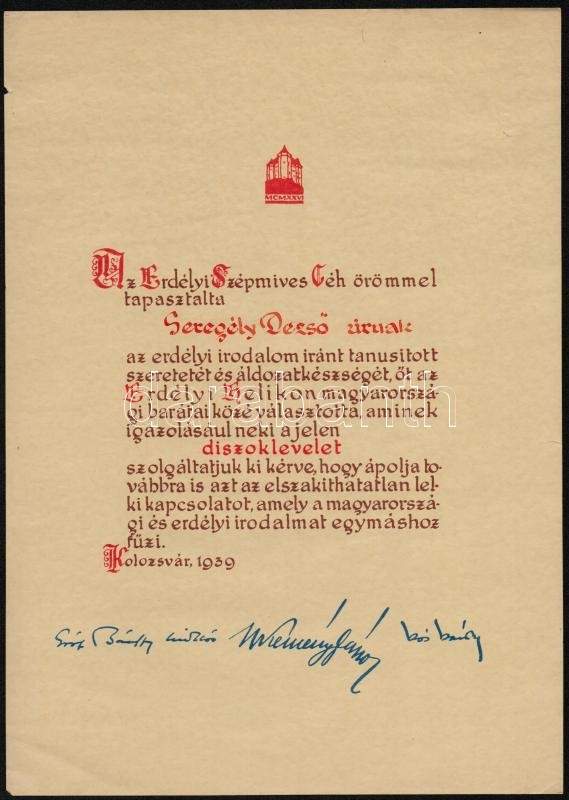 MCMXXVI
Az Erdélyi Szépmives Céh örömmel
tapasztalta
Seregély Dezső úrnak
az erdélyi irodalom iránt tanusitott
szeretetét és áldozatkészségét, őt az
Erdélyi Helikon magyarorszá-
gi barátai közé választotta, aminek
igazolásául neki a jelen
diszoklevelet
szolgáltatjuk ki kérve, hogy ápolja to-
vábbra is azt az elszakithatatlan lel-
ki kapcsolatot, amely a magyarorszá-
gi és erdélyi irodalmat egymáshoz
fűzi.
Kolozsvár, 1939
Gróf Bánffy Miklós Kemény János Kós Károly
darabanth